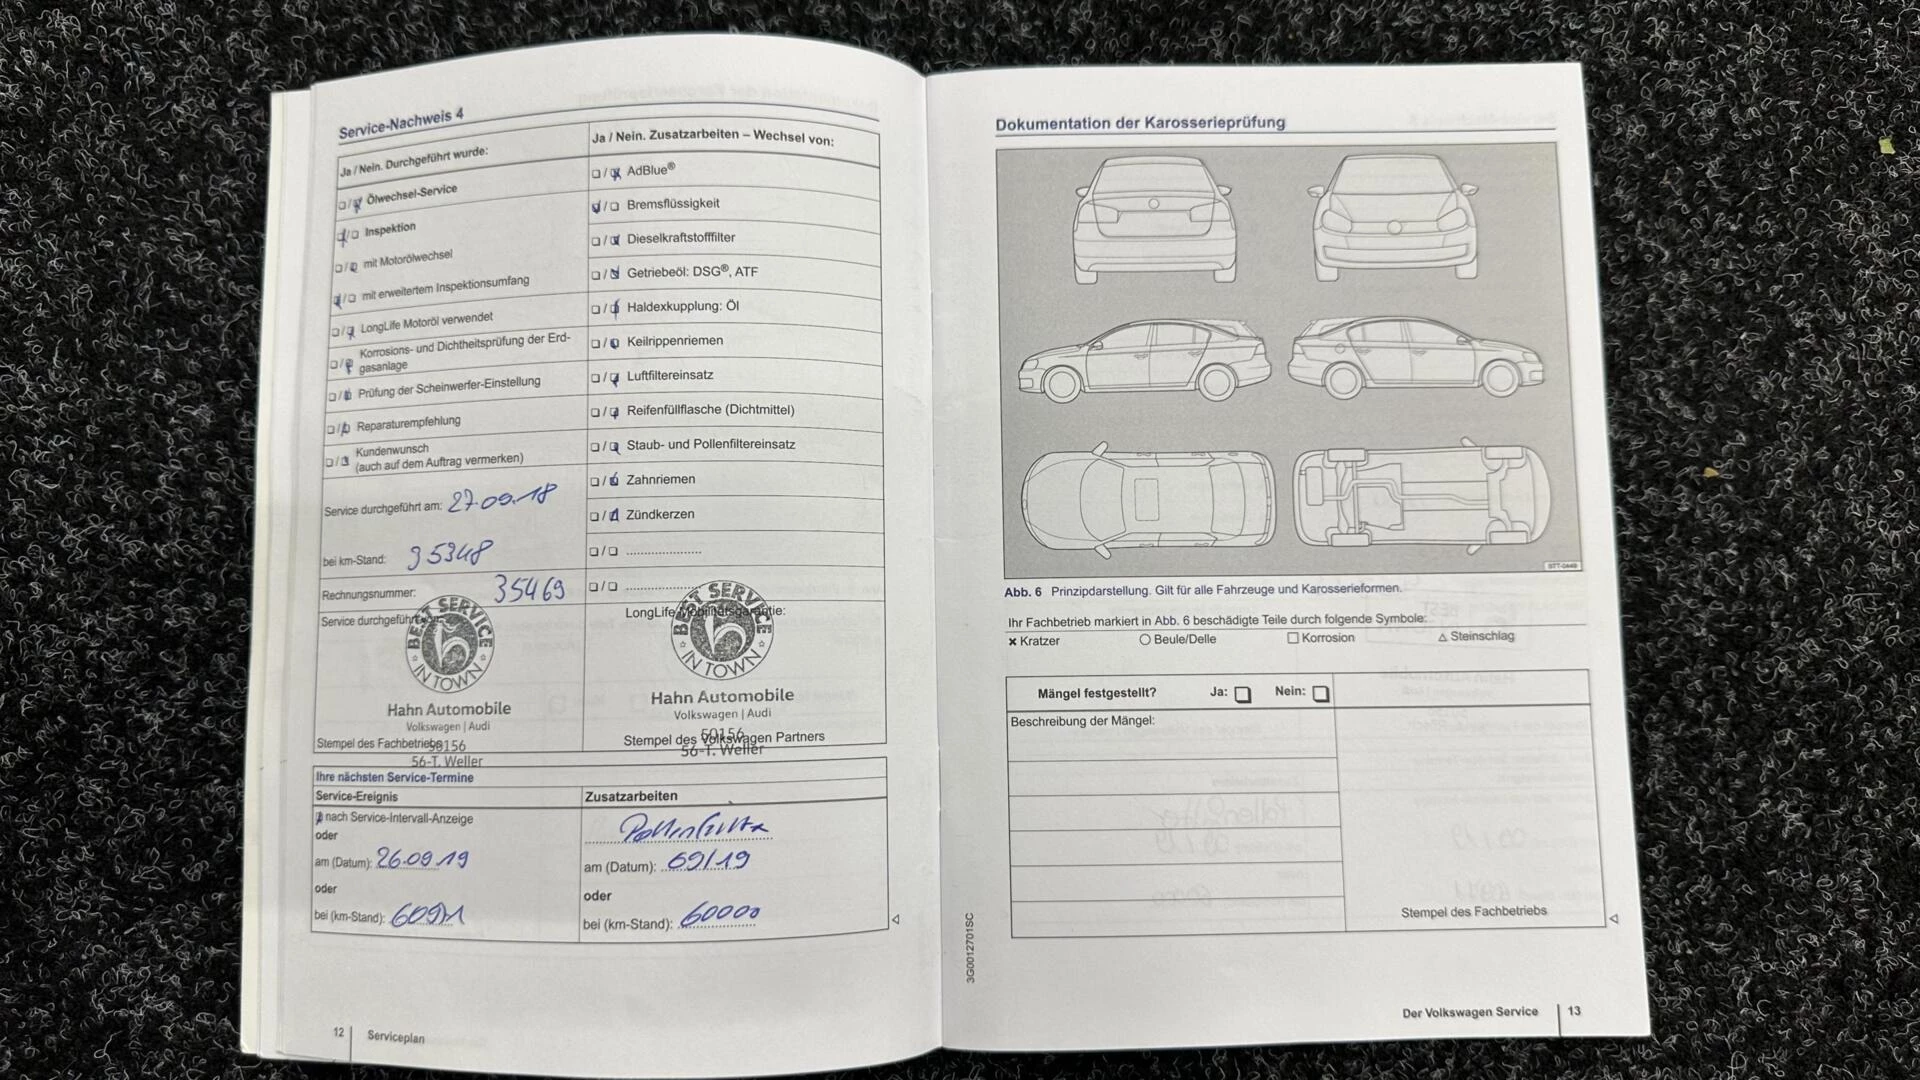 Service-Nachweis 4
Ja / Nein. Durchgeführt wurde:
Ölwechsel-Service
Inspektion
mit Motorölwechsel
mit erweitertem Inspektionsumfang
LongLife Motoröl verwendet
Korrosions- und Dichtheitsprüfung der Erd-
gasanlage
Prüfung der Scheinwerfer-Einstellung
Reparaturempfehlung
Kundenwunsch
(auch auf dem Auftrag vermerken)
Service durchgeführt am: 27.09.18
bei km-Stand: 35348
Rechnungsnummer: 35469
Service durchgeführt
BEST SERVICE
IN TOWN
Hahn Automobile
Volkswagen | Audi
Stempel des Fachbetriebs
56-T. Weller
Ja / Nein. Zusatzarbeiten – Wechsel von:
AdBlue®
Bremsflüssigkeit
Dieselkraftstofffilter
Getriebeöl: DSG®, ATF
Haldexkupplung: Öl
Keilrippenriemen
Luftfiltereinsatz
Reifenfüllflasche (Dichtmittel)
Staub- und Pollenfiltereinsatz
Zahnriemen
Zündkerzen
LongLife Mobilitätsgarantie:
BEST SERVICE
IN TOWN
Hahn Automobile
Volkswagen | Audi
50156
Stempel des Volkswagen Partners
56-T. Weller
Ihre nächsten Service-Termine
Service-Ereignis
nach Service-Intervall-Anzeige
oder
am (Datum): 26.09.19
oder
bei (km-Stand):
Zusatzarbeiten
Pollenfilter
am (Datum): 09/19
oder
bei (km-Stand): 60000
12 Serviceplan
Dokumentation der Karosserieprüfung
Abb. 6 Prinzipdarstellung. Gilt für alle Fahrzeuge und Karosserieformen.
Ihr Fachbetrieb markiert in Abb. 6 beschädigte Teile durch folgende Symbole:
× Kratzer ○ Beule/Delle □ Korrosion △ Steinschlag
Mängel festgestellt? Ja: □ Nein: □
Beschreibung der Mängel:
Stempel des Fachbetriebs
3G0012701SC
Der Volkswagen Service 13